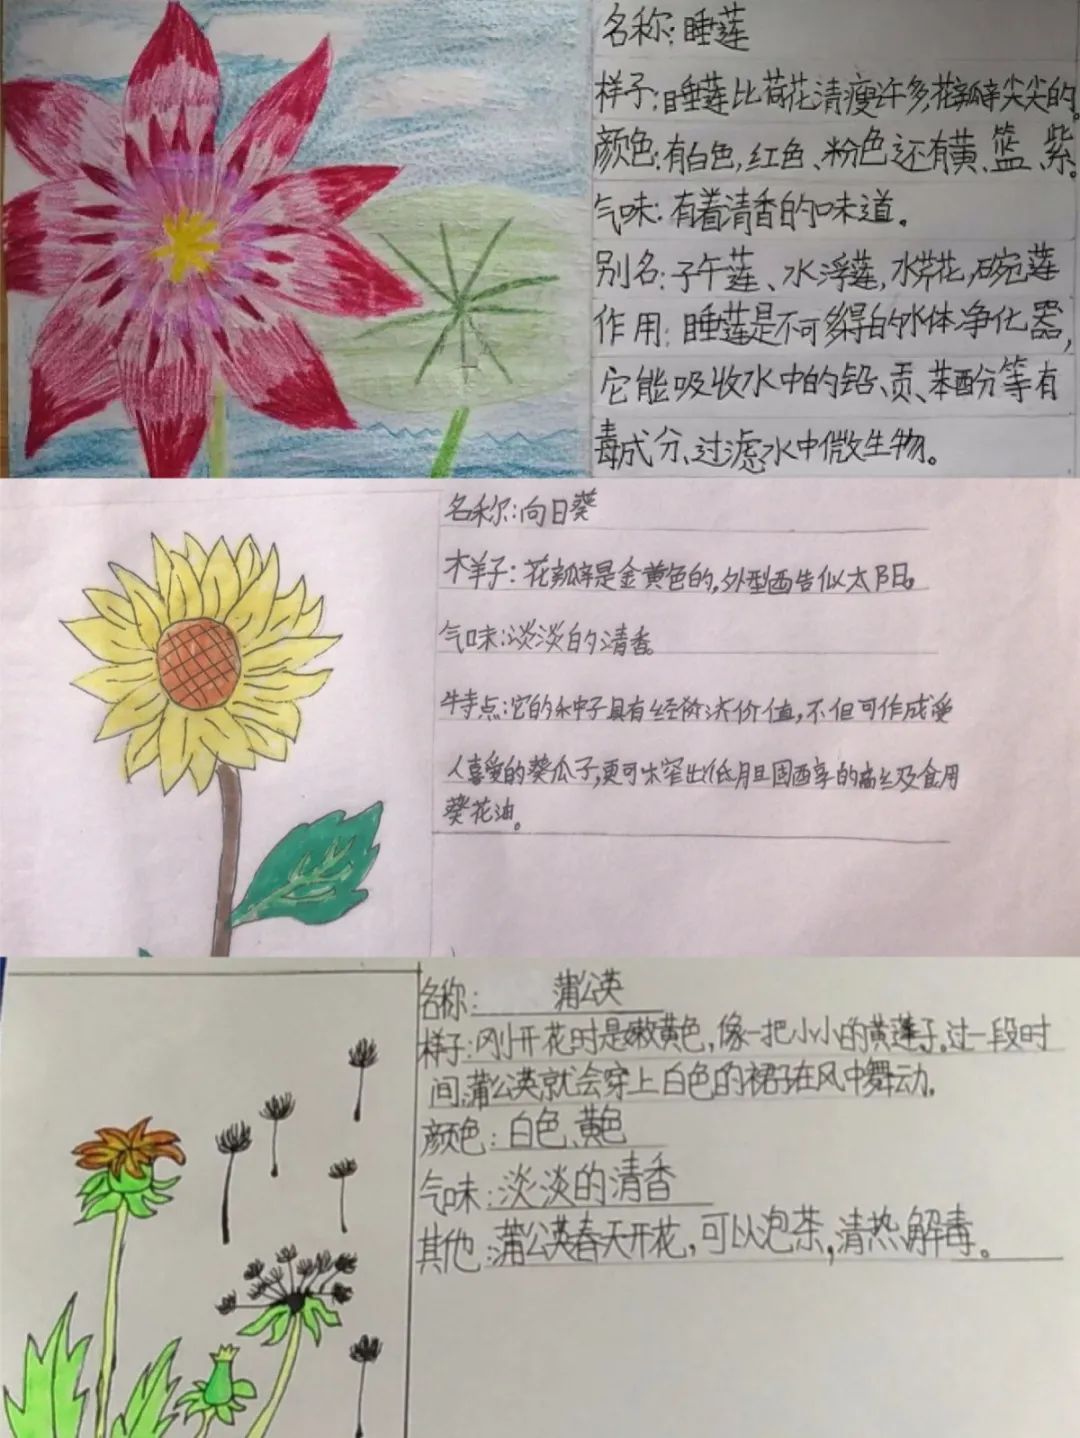 名称:睡莲
样子:睡莲比荷花清瘦许多花瓣尖尖的。
颜色:有白色,红色、粉色还有黄、篮、紫。
气味:有着清香的味道。
别名:子午莲、水浮莲,水芹花,碗莲
作用:睡莲是不可多得的水体净化器,
它能吸收水中的铅、贡、苯酚分等有
毒成分、过滤水中微生物。
名称:向日葵
样子:花瓣是金黄色的,外型酉告似太阳。
气味:淡淡的清香。
特点:它的种子具有经济价值,不但可作成受
人喜爱的葵瓜子,更可榨出低胆固醇的高级食用
葵花油。
名称:蒲公英
样子:刚开花时是嫩黄色,像一把小小的黄莲子。过一段时
间,蒲公英就会穿上白色的裙子在风中舞动。
颜色:白色、黄色
气味:淡淡的清香
其他:蒲公英春天开花,可以泡茶,清热解毒。